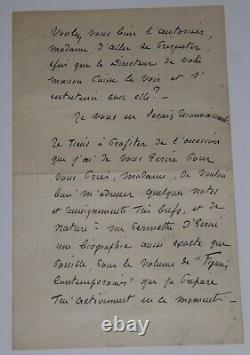 Voulez vous bien l'autoriser,
madame d'aller se présenter,
afin que le directeur de votre
maison puisse la voir et s'
entretenir avec elle? -
Je vous en serais reconnaissant.
Je tiens à profiter de l'occasion
que j'ai de vous écrire pour
vous prier, madame, de vouloir
bien m'adresser quelques notes
et renseignements très brefs, et de
nature à me permettre d'écrire
une biographie aussi exacte que
possible, pour le volume de "Figures
Contemporaines" que je prépare
très activement en ce moment -